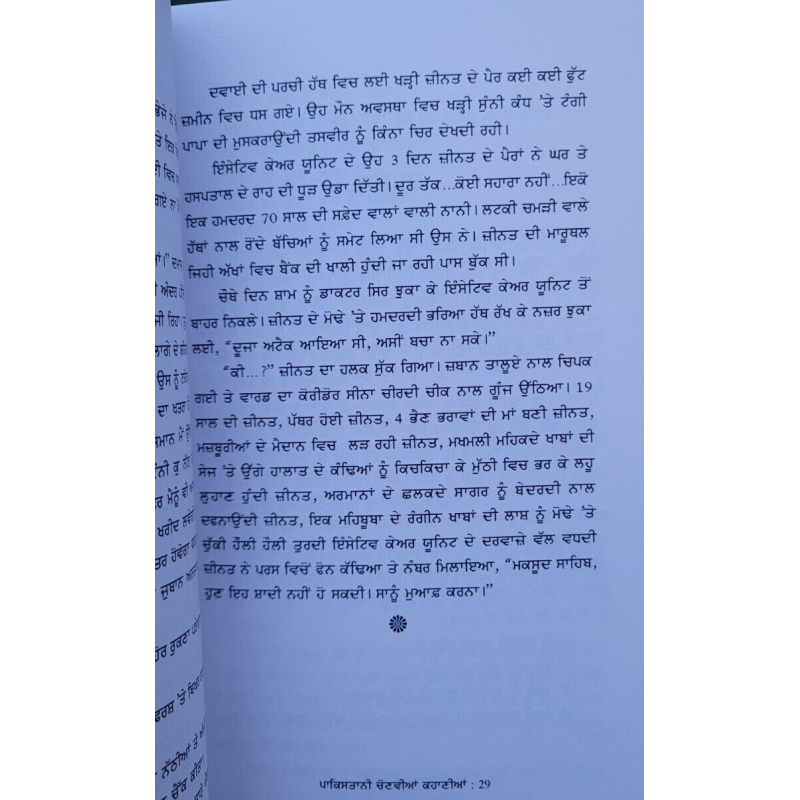 ਦਵਾਈ ਦੀ ਪਰਚੀ ਹੱਥ ਵਿਚ ਲਈ ਖੜ੍ਹੀ ਜ਼ੀਨਤ ਦੇ ਪੈਰ ਕਈ ਕਈ ਫੁੱਟ
ਜ਼ਮੀਨ ਵਿਚ ਧਸ ਗਏ। ਉਹ ਮੌਨ ਅਵਸਥਾ ਵਿਚ ਖੜ੍ਹੀ ਸੁੰਨੀ ਕੰਧ ’ਤੇ ਟੰਗੀ
ਪਾਪਾ ਦੀ ਮੁਸਕਰਾਉਂਦੀ ਤਸਵੀਰ ਨੂੰ ਕਿੰਨਾ ਚਿਰ ਦੇਖਦੀ ਰਹੀ।
ਇੰਸੇਟਿਵ ਕੇਅਰ ਯੂਨਿਟ ਦੇ ਉਹ 3 ਦਿਨ ਜ਼ੀਨਤ ਦੇ ਪੈਰਾਂ ਨੇ ਘਰ ਤੇ
ਹਸਪਤਾਲ ਦੇ ਰਾਹ ਦੀ ਧੂੜ ਉਡਾ ਦਿੱਤੀ। ਦੂਰ ਤੱਕ...ਕੋਈ ਸਹਾਰਾ ਨਹੀਂ...ਇਕੋ
ਇਕ ਹਮਦਰਦ 70 ਸਾਲ ਦੀ ਸਫ਼ੇਦ ਵਾਲਾਂ ਵਾਲੀ ਨਾਨੀ। ਲਟਕੀ ਚਮੜੀ ਵਾਲੇ
ਹੱਥਾਂ ਨਾਲ ਰੋਂਦੇ ਬੱਚਿਆਂ ਨੂੰ ਸਮੇਟ ਲਿਆ ਸੀ ਉਸ ਨੇ। ਜ਼ੀਨਤ ਦੀ ਮਾਰੂਥਲ
ਜਿਹੀ ਅੱਖਾਂ ਵਿਚ ਬੈਂਕ ਦੀ ਖਾਲੀ ਹੁੰਦੀ ਜਾ ਰਹੀ ਪਾਸ ਬੁੱਕ ਸੀ।
ਚੌਥੇ ਦਿਨ ਸ਼ਾਮ ਨੂੰ ਡਾਕਟਰ ਸਿਰ ਝੁਕਾ ਕੇ ਇੰਸੇਟਿਵ ਕੇਅਰ ਯੂਨਿਟ ਤੋਂ
ਬਾਹਰ ਨਿਕਲੇ। ਜ਼ੀਨਤ ਦੇ ਮੋਢੇ ’ਤੇ ਹਮਦਰਦੀ ਭਰਿਆ ਹੱਥ ਰੱਖ ਕੇ ਨਜ਼ਰ ਝੁਕਾ
ਲਈ, “ਦੂਜਾ ਅਟੈਕ ਆਇਆ ਸੀ, ਅਸੀਂ ਬਚਾ ਨਾ ਸਕੇ।”
“ਕੀ...?” ਜ਼ੀਨਤ ਦਾ ਹਲਕ ਸੁੱਕ ਗਿਆ। ਜ਼ਬਾਨ ਤਾਲੂਏ ਨਾਲ ਚਿਪਕ
ਗਈ ਤੇ ਵਾਰਡ ਦਾ ਕੋਰੀਡੋਰ ਸੀਨਾ ਚੀਰਦੀ ਚੀਕ ਨਾਲ ਗੂੰਜ ਉੱਠਿਆ। 19
ਸਾਲ ਦੀ ਜ਼ੀਨਤ, ਪੱਥਰ ਹੋਈ ਜ਼ੀਨਤ, 4 ਭੈਣ ਭਰਾਵਾਂ ਦੀ ਮਾਂ ਬਣੀ ਜ਼ੀਨਤ,
ਮਜ਼ਬੂਰੀਆਂ ਦੇ ਮੈਦਾਨ ਵਿਚ ਲੜ ਰਹੀ ਜ਼ੀਨਤ, ਮਖਮਲੀ ਮਹਿਕਦੇ ਖਾਬਾਂ ਦੀ
ਸੇਜ ’ਤੇ ਉੱਗੇ ਹਾਲਾਤ ਦੇ ਕੰਢਿਆਂ ਨੂੰ ਕਿਚਕਿਚਾ ਕੇ ਮੁੱਠੀ ਵਿਚ ਭਰ ਕੇ ਲਹੂ
ਲੁਹਾਣ ਹੁੰਦੀ ਜ਼ੀਨਤ, ਅਰਮਾਨਾਂ ਦੇ ਛਲਕਦੇ ਸਾਗਰ ਨੂੰ ਬੇਦਰਦੀ ਨਾਲ
ਦਫਨਾਉਂਦੀ ਜ਼ੀਨਤ, ਇਕ ਮਹਿਬੂਬਾ ਦੇ ਰੰਗੀਨ ਖਾਬਾਂ ਦੀ ਲਾਸ਼ ਨੂੰ ਮੋਢੇ ’ਤੇ
ਚੁੱਕੀ ਹੌਲੀ ਹੌਲੀ ਤੁਰਦੀ ਇੰਸੇਟਿਵ ਕੇਅਰ ਯੂਨਿਟ ਦੇ ਦਰਵਾਜ਼ੇ ਵੱਲ ਵਧਦੀ
ਜ਼ੀਨਤ ਨੇ ਪਰਸ ਵਿਚੋਂ ਫੋਨ ਕੱਢਿਆ ਤੇ ਨੰਬਰ ਮਿਲਾਇਆ, “ਮਕਸੂਦ ਸਾਹਿਬ,
ਹੁਣ ਇਹ ਸ਼ਾਦੀ ਨਹੀਂ ਹੋ ਸਕਦੀ। ਸਾਨੂੰ ਮੁਆਫ਼ ਕਰਨਾ।”
ਪਾਕਿਸਤਾਨੀ ਚੋਣਵੀਆਂ ਕਹਾਣੀਆਂ : 29